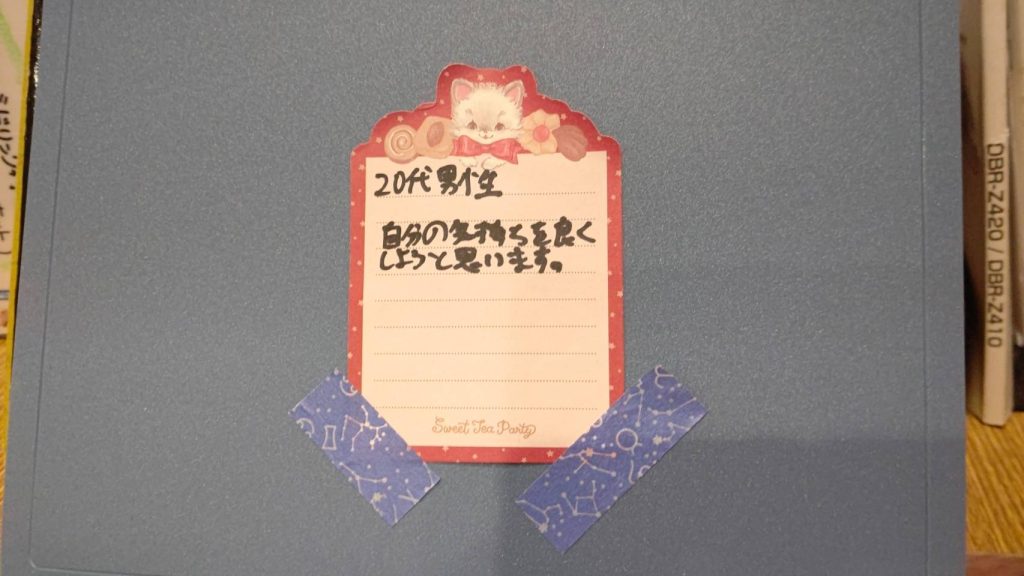 20代男性
自分の気持ちを良く
しようと思います。
Sweet Tea Party
DBR-Z420 / DBR-Z410